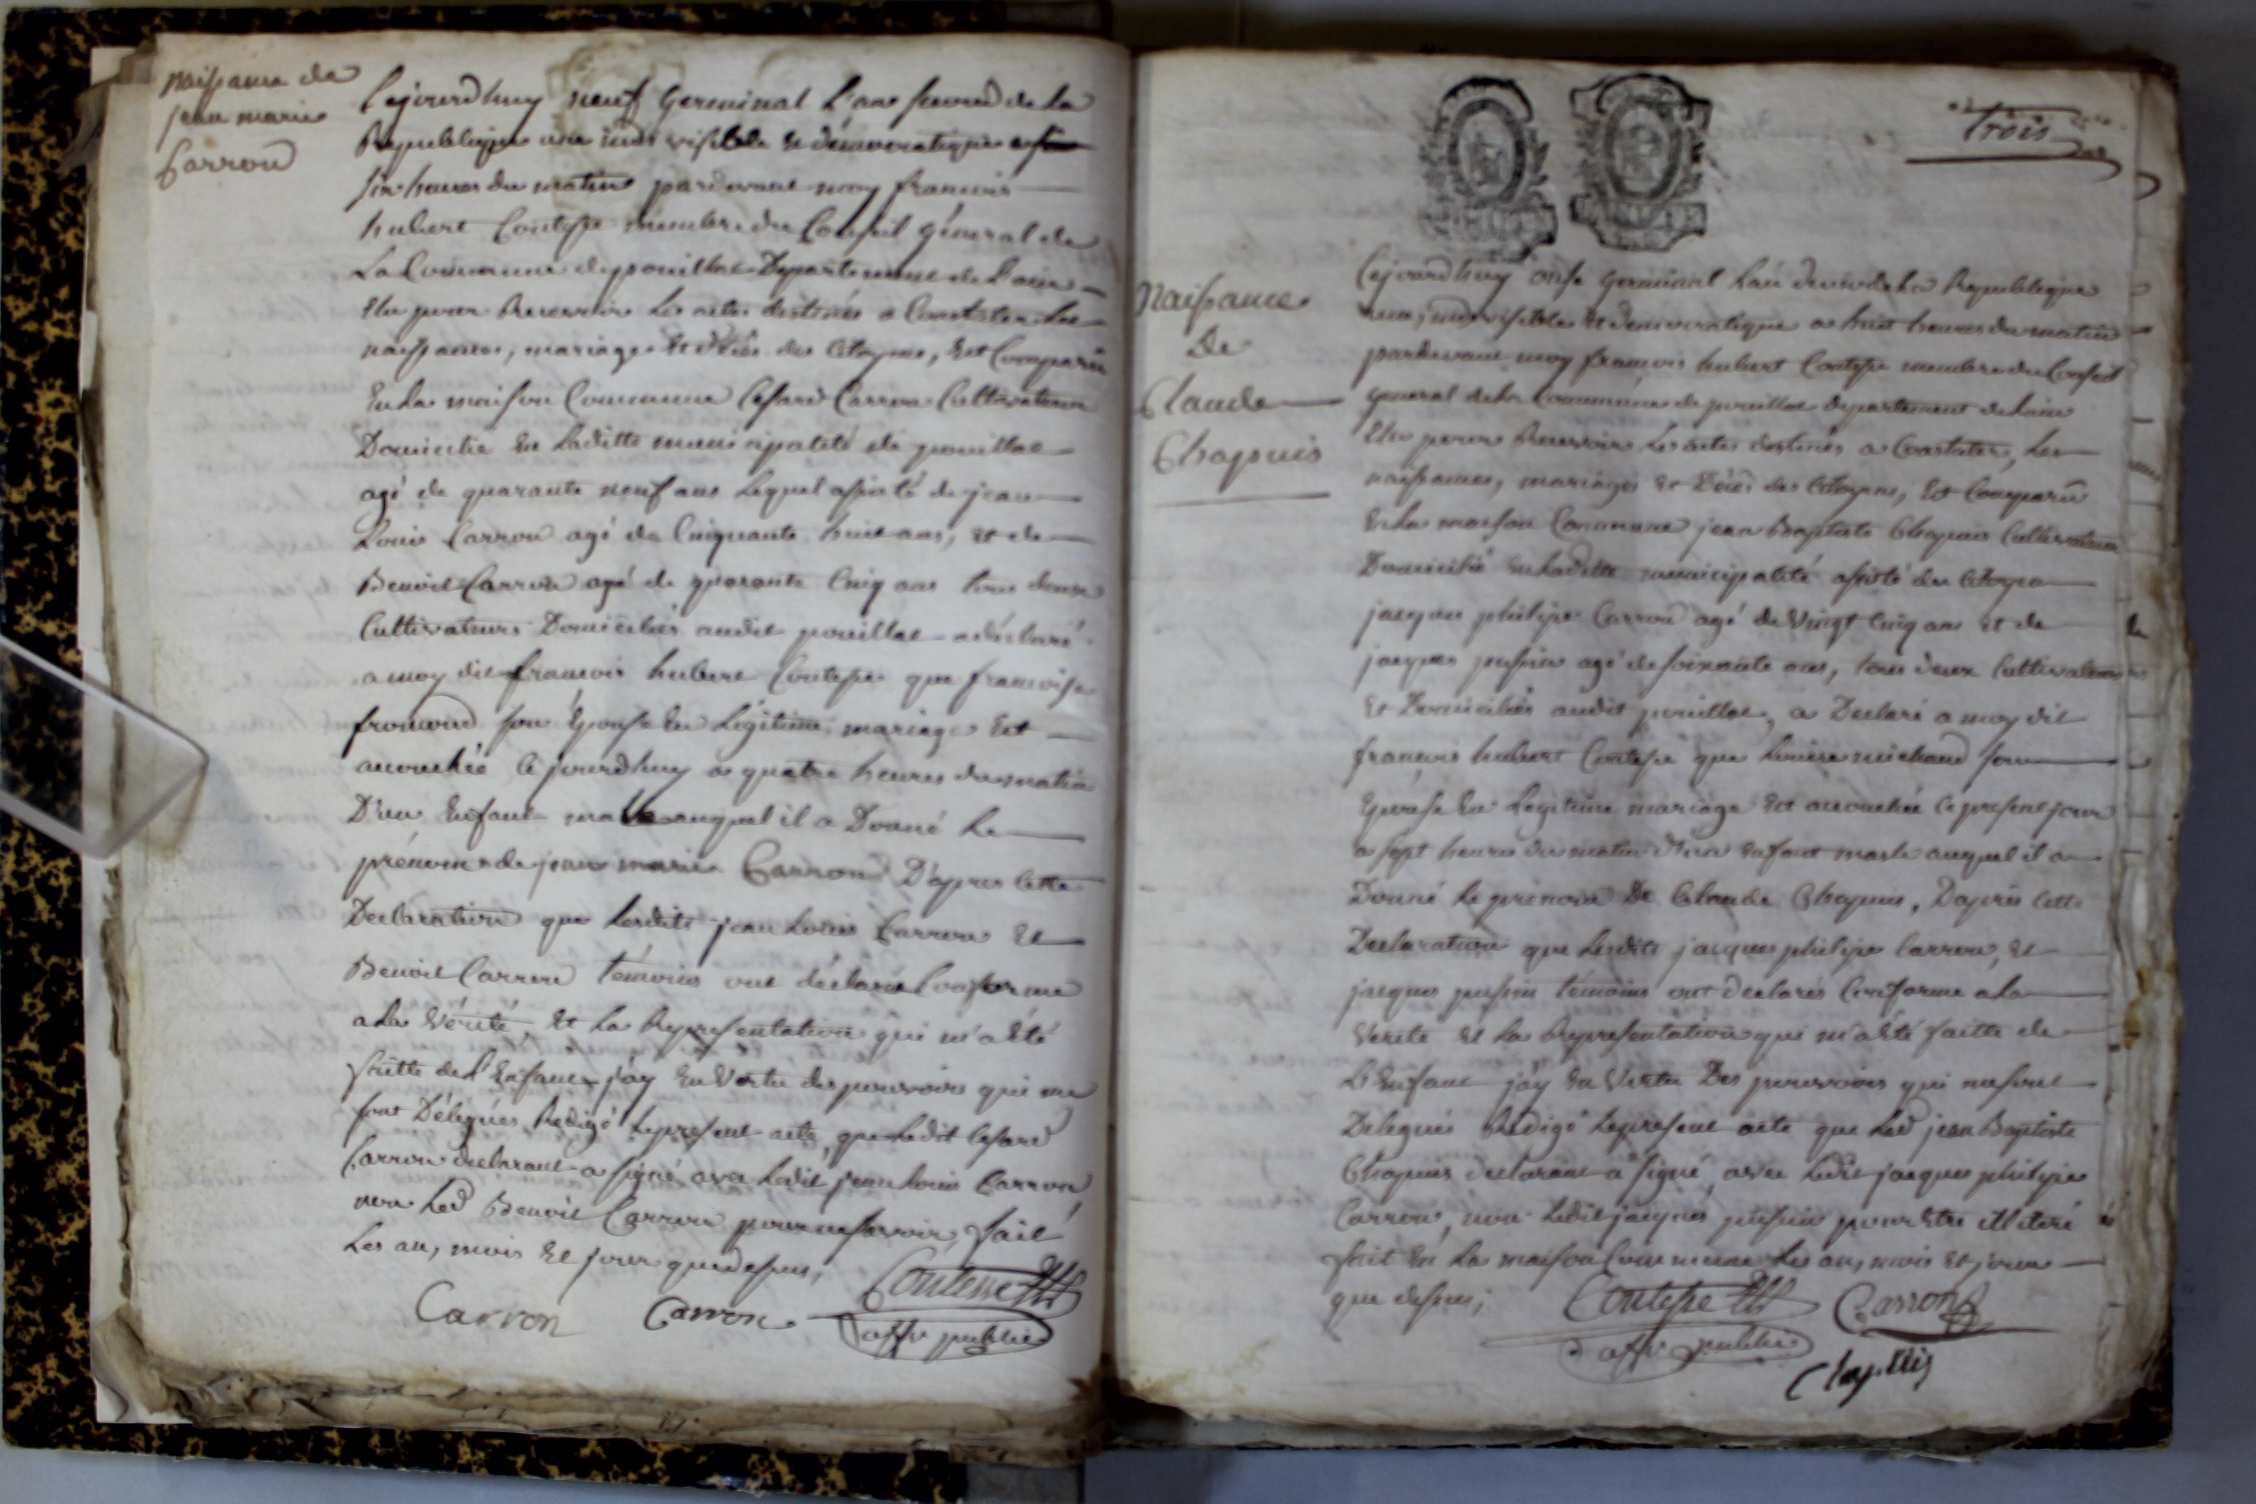 naissance de
jean marie
Carron
Cejourdhuy neuf Germinal L'an second de La
Republique une indivisibble et démocratique a
six heures du matin pardevant moy francois
hubert Contesse membre du Conseil général de
La Commune de pouillat Departement de L'ain
Elu pour Recevoir Les actes destinés a Constater Les
naissances, mariages et décès des Citoyens, Est Comparu
En La maison Commune Cesard Carron Cultivateur
Domicilie En Laditte municipalité de pouillat
agé de quarante neuf ans Lequel assisté de jean
Louis Carron agé de Cinquante huit ans, et de
Benoit Carron agé de quarante Cinq ans tous deux
Cultivateurs Domiciliés audit pouillat a déclaré
a moy dit francois hubert Contesse que francoise
fromond son Epouse En Légitime mariage Est
accouchée Cejourdhuy a quatre heures du matin
D'un Enfant male auquel il a Donné Le
prénom de jean marie Carron D'apres Cette
Declaration que Lesdits jean Louis Carron Et
Benoit Carron témoins ont déclaré Conforme
a La Vérité, Et La Representation qui m'a été
faitte de L'Enfant j'ay En Vertu des pouvoirs qui me
sont Délégués Redigé Le present acte, que Ledit Cesard
Carron declarant a signé avec Ledit jean Louis Carron,
non Led Benoit Carron pour ne savoir, fait
Les an, mois Et jour que dessus,
Carron Carron Contesse
off. public
trois
Naissance
De
Claude
Chapuis
Cejourdhuy onse Germinal L'an deux de La Republique
une, indivisible Et democratique a huit heures du matin
pardevant moy francois hubert Contesse membre du Conseil
general de La Commune de pouillat departement de L'ain
Elu pour Recevoir Les actes destinés a Constater, Les
naissances, mariages Et Décès des Citoyens, Est Comparu
En La maison Commune jean Baptiste Chapuis Cultivateur
Domicilié En Laditte municipalité assisté du Citoyen
jacques philipe Carron agé de Vingt Cinq ans Et de
jacques agé de soixante ans, tous deux Cultivateurs
Et Domiciliés audit pouillat, a Declaré a moy dit
francois hubert Contesse que michaud son
Epouse En Legitime mariage Est accouchée Ce present jour
a sept heures du matin d'un Enfant masle auquel il a
Donné Le prenom De Claude Chapuis, D'après Cette
Declaration que Lesdits jacques philipe Carron, Et
jacques témoins ont declarés Conforme a La
Verite Et La Representation qui m'a été faitte de
L'Enfant j'ay En Vertu Des pouvoirs qui me sont
Delegués Redigé Le present acte que Led jean Baptiste
Chapuis declarant a signé, avec Ledit jacques philipe
Carron, non Ledit jacques pour Etre illiteré
fait En La maison Commune Les an, mois Et jour
que dessus; Contesse Carron
off. public
Chapuis